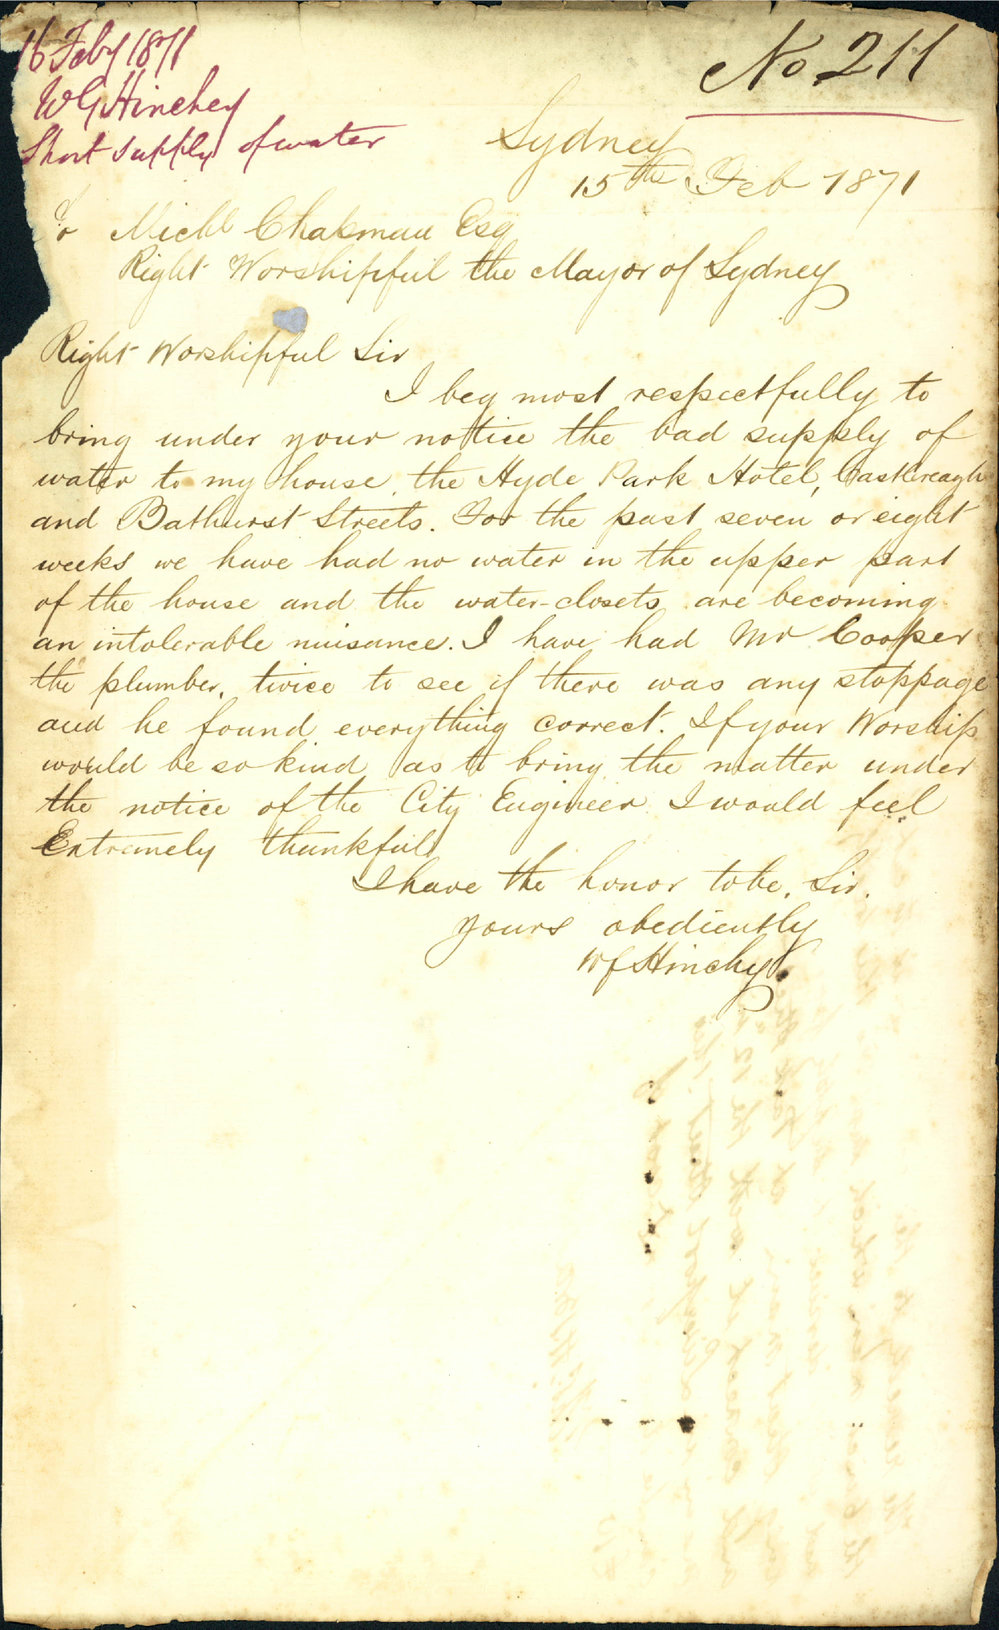 16 Feby 1871
W G Hinchey
Short supply of water
No 211
Sydney
15th Feb 1871
To Michl Chapman Esq
Right Worshipful the Mayor of Sydney
Right Worshipful Sir
I beg most respectfully to
bring under your notice the bad supply of
water to my house, the Hyde Park Hotel, Castlereagh
and Bathurst Streets. For the past seven or eight
weeks we have had no water in the upper part
of the house and the water-closets are becoming
an intolerable nuisance. I have had Mr Cooper
the plumber, twice to see if there was any stoppage
and he found everything correct. If your Worship
would be so kind as to bring the matter under
the notice of the City Engineer I would feel
Extremely thankful
I have the honor to be, Sir,
yours obediently
Hinchy